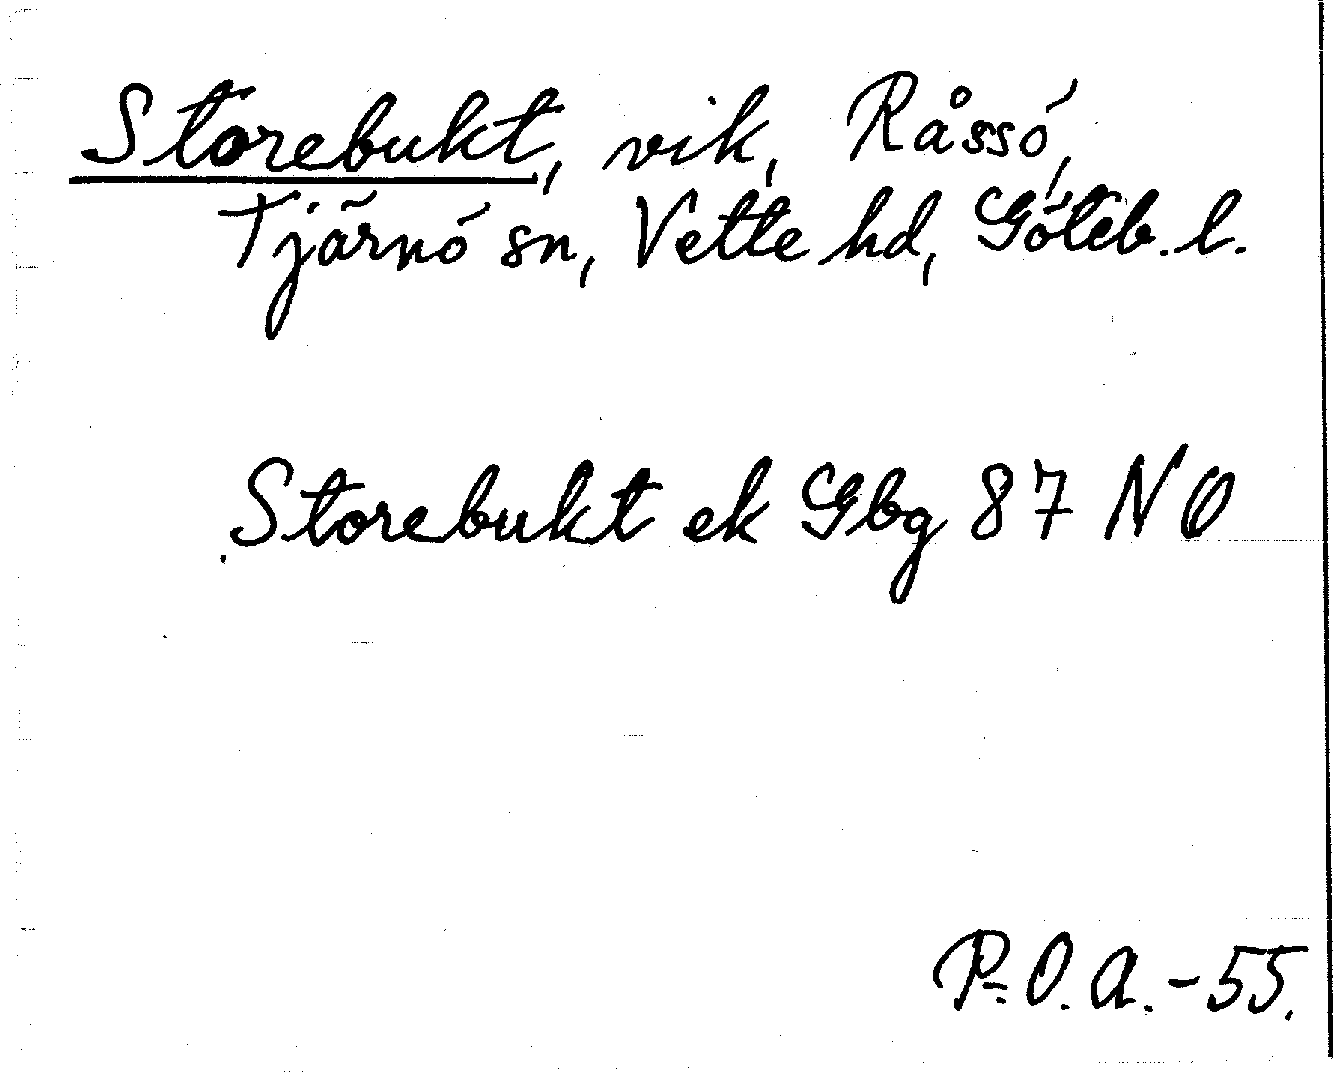 Storebukt, vik, Råssö,
Tjärnö sn, Vette hd, Göteb. l.
Storebukt ek Gbg 87 NO
P.O.A. -55.